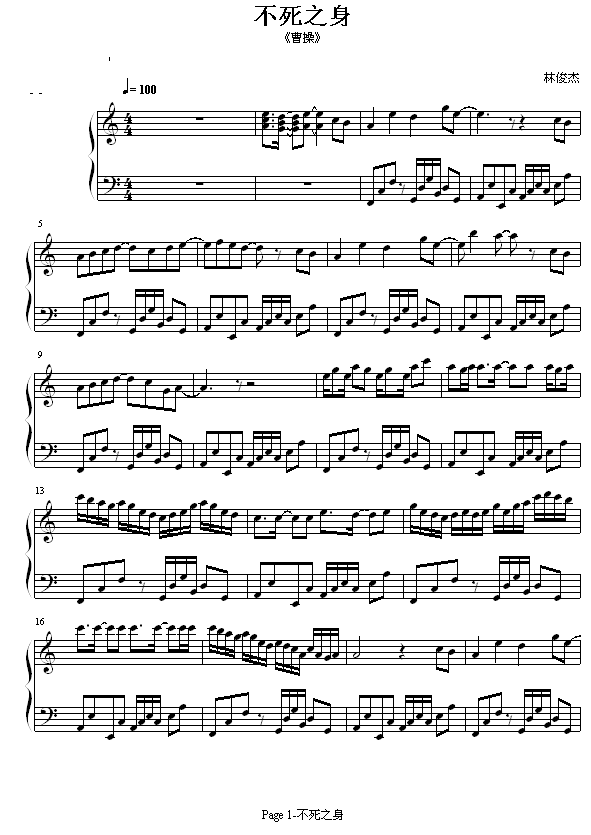 不死之身
《曹操》
林俊杰
♩= 100
4
4
5
9
13
16
Page 1-不死之身